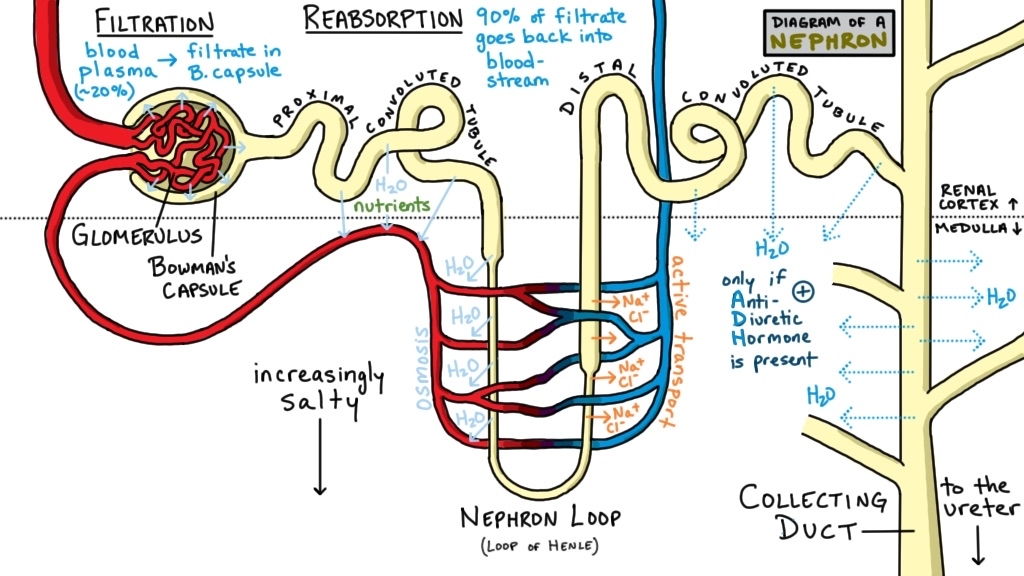 FILTRATION
blood
plasma → filtrate in
(~20%) B. capsule
REABSORPTION
90% of filtrate
goes back into
blood-
stream
DIAGRAM OF A
NEPHRON
PROXIMAL CONVOLUTED TUBULE
DISTAL CONVOLUTED TUBULE
H₂O
nutrients
GLOMERULUS
BOWMAN'S
CAPSULE
RENAL
CORTEX ↑
MEDULLA ↓
increasingly
salty
Osmosis
H₂O
H₂O
H₂O
H₂O
Na⁺
Cl⁻
Na⁺
Cl⁻
Na⁺
Cl⁻
active transport
H₂O
only if +
Anti-
Diuretic
Hormone
is present
H₂O
H₂O
NEPHRON LOOP
(LOOP OF HENLE)
COLLECTING
DUCT
to the
ureter